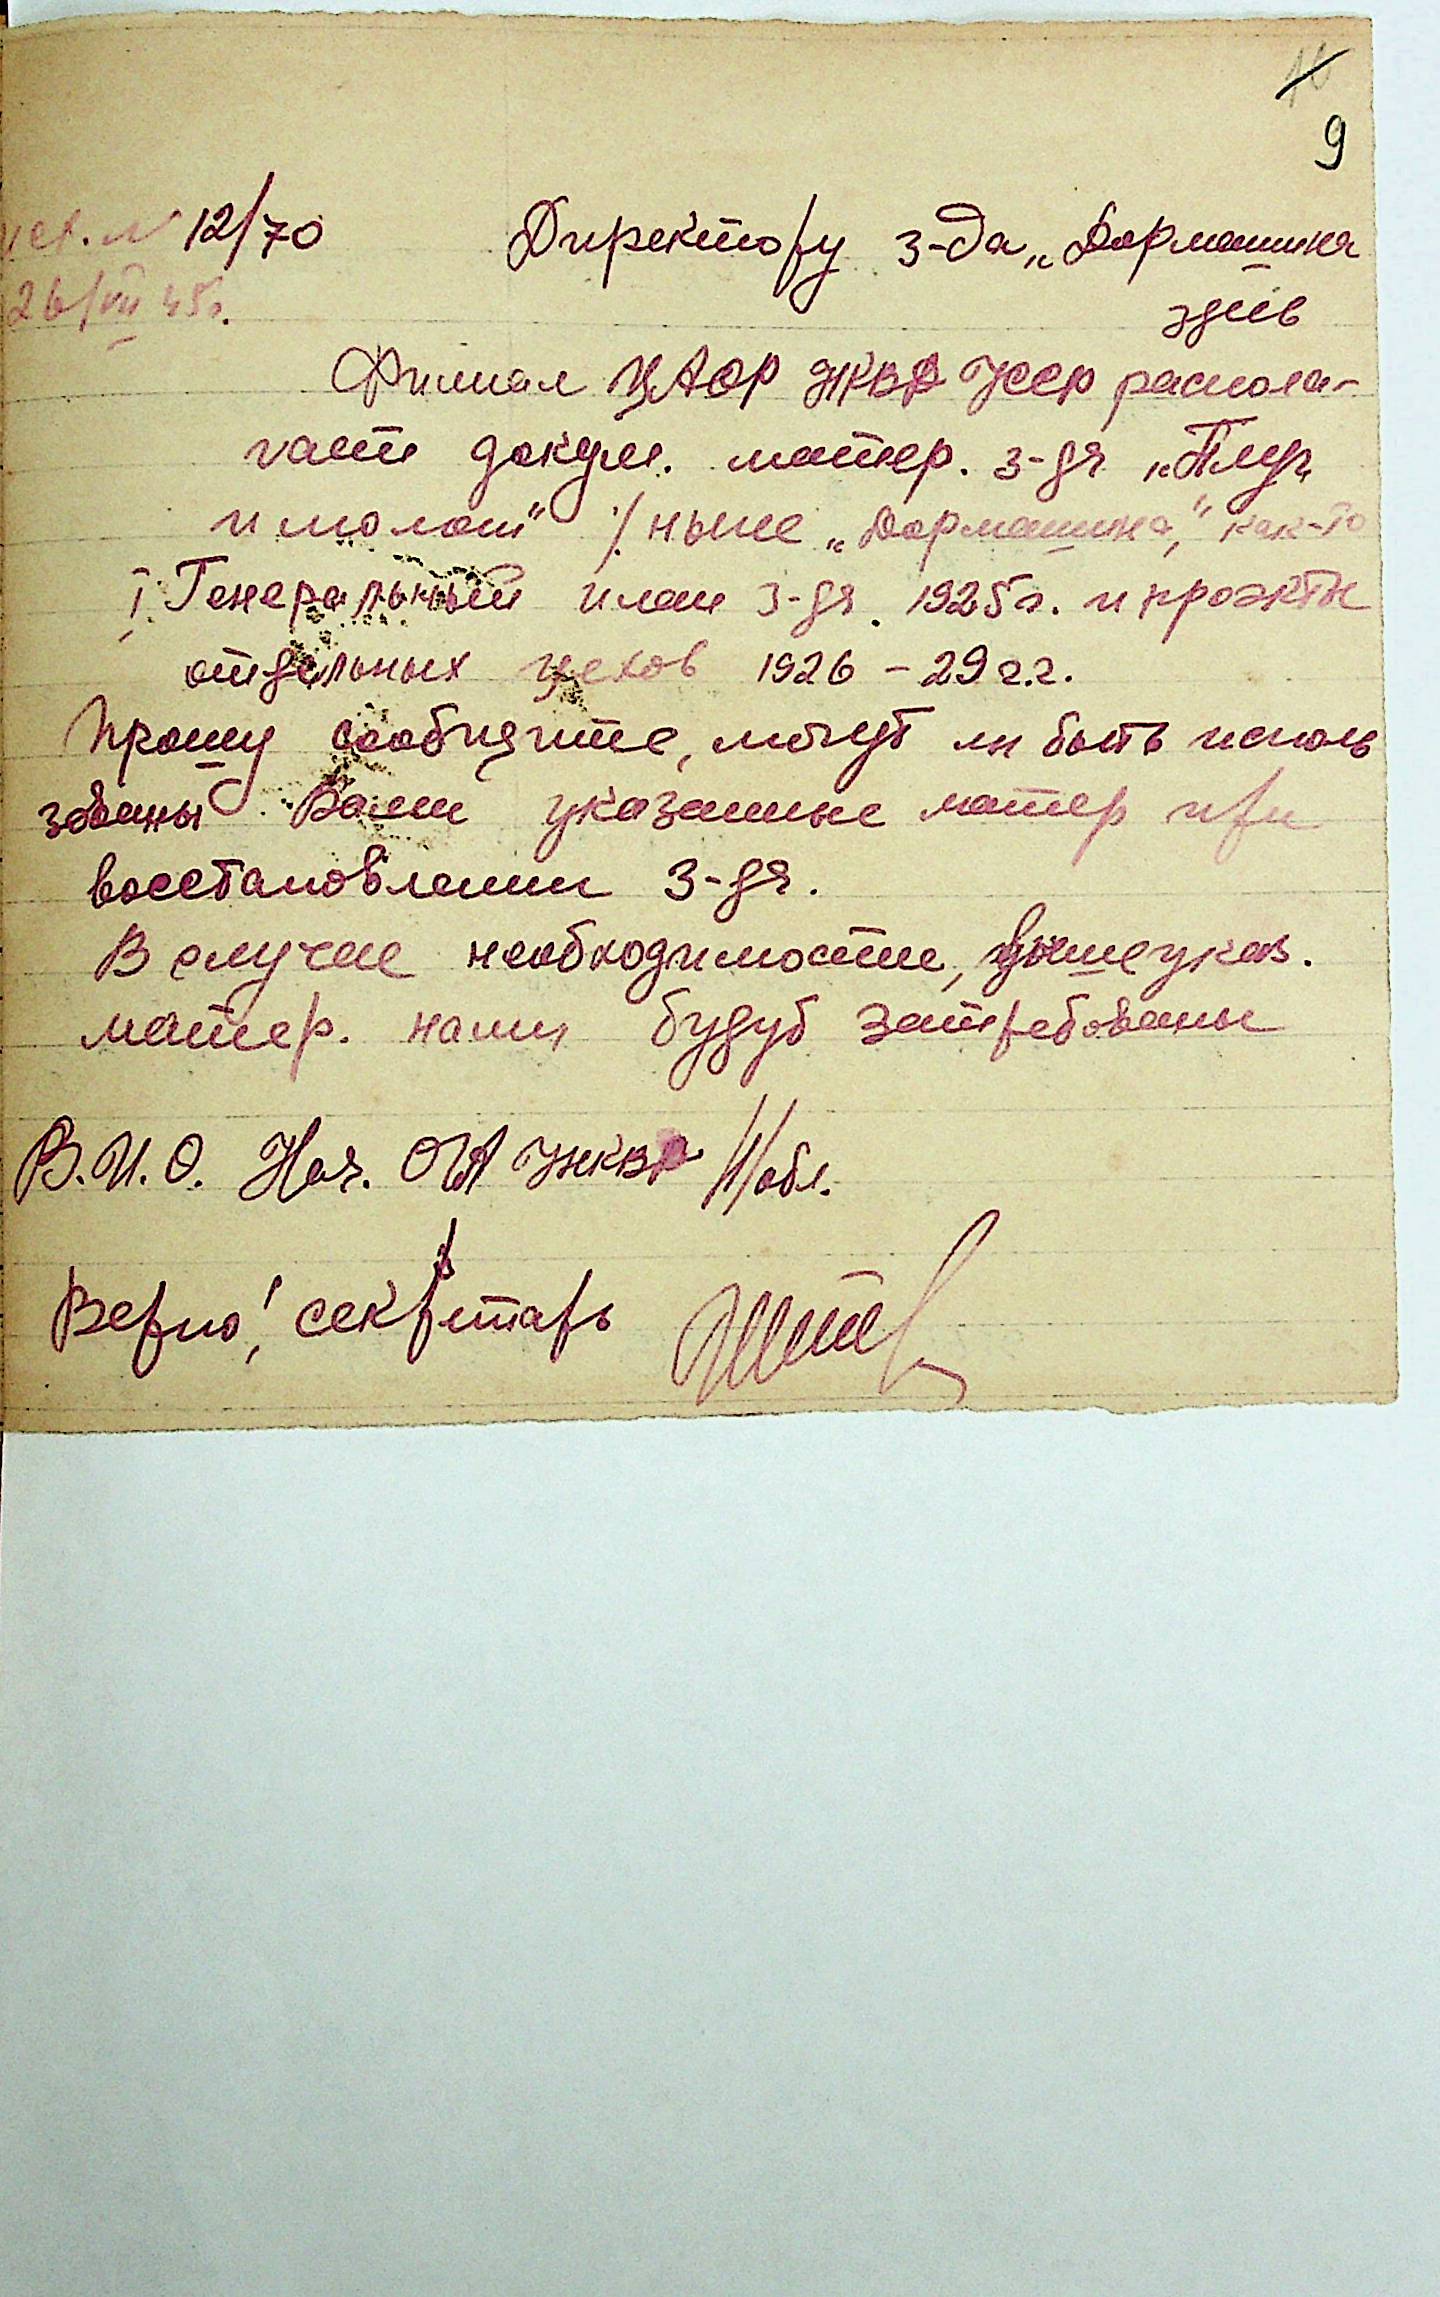 10
9
исх. № 12/70 Директору з-да „Дормашина
26/VII 45г. здесь
Филиал ЦАОР НКВД УССР распола-
гает докум. матер. з-да „Плуг
и молот" /ныне „Дормашина", как-то
I Генеральный план з-да 1925г. и проэкты
отдельных цехов 1926 - 29 г.г.
Прошу сообщите, могут ли быть исполь
зованы Вами указанные матер при
восстановлении з-да.
В случае необходимости, вышеуказ.
матер. нами будут затребованы
В.И.О. Нач. ОГА УНКВД Н/обл.
Верно! секретарь